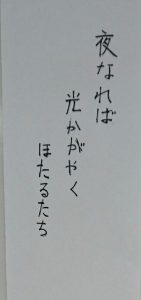 夜なれば
光かがやく
ほたるたち